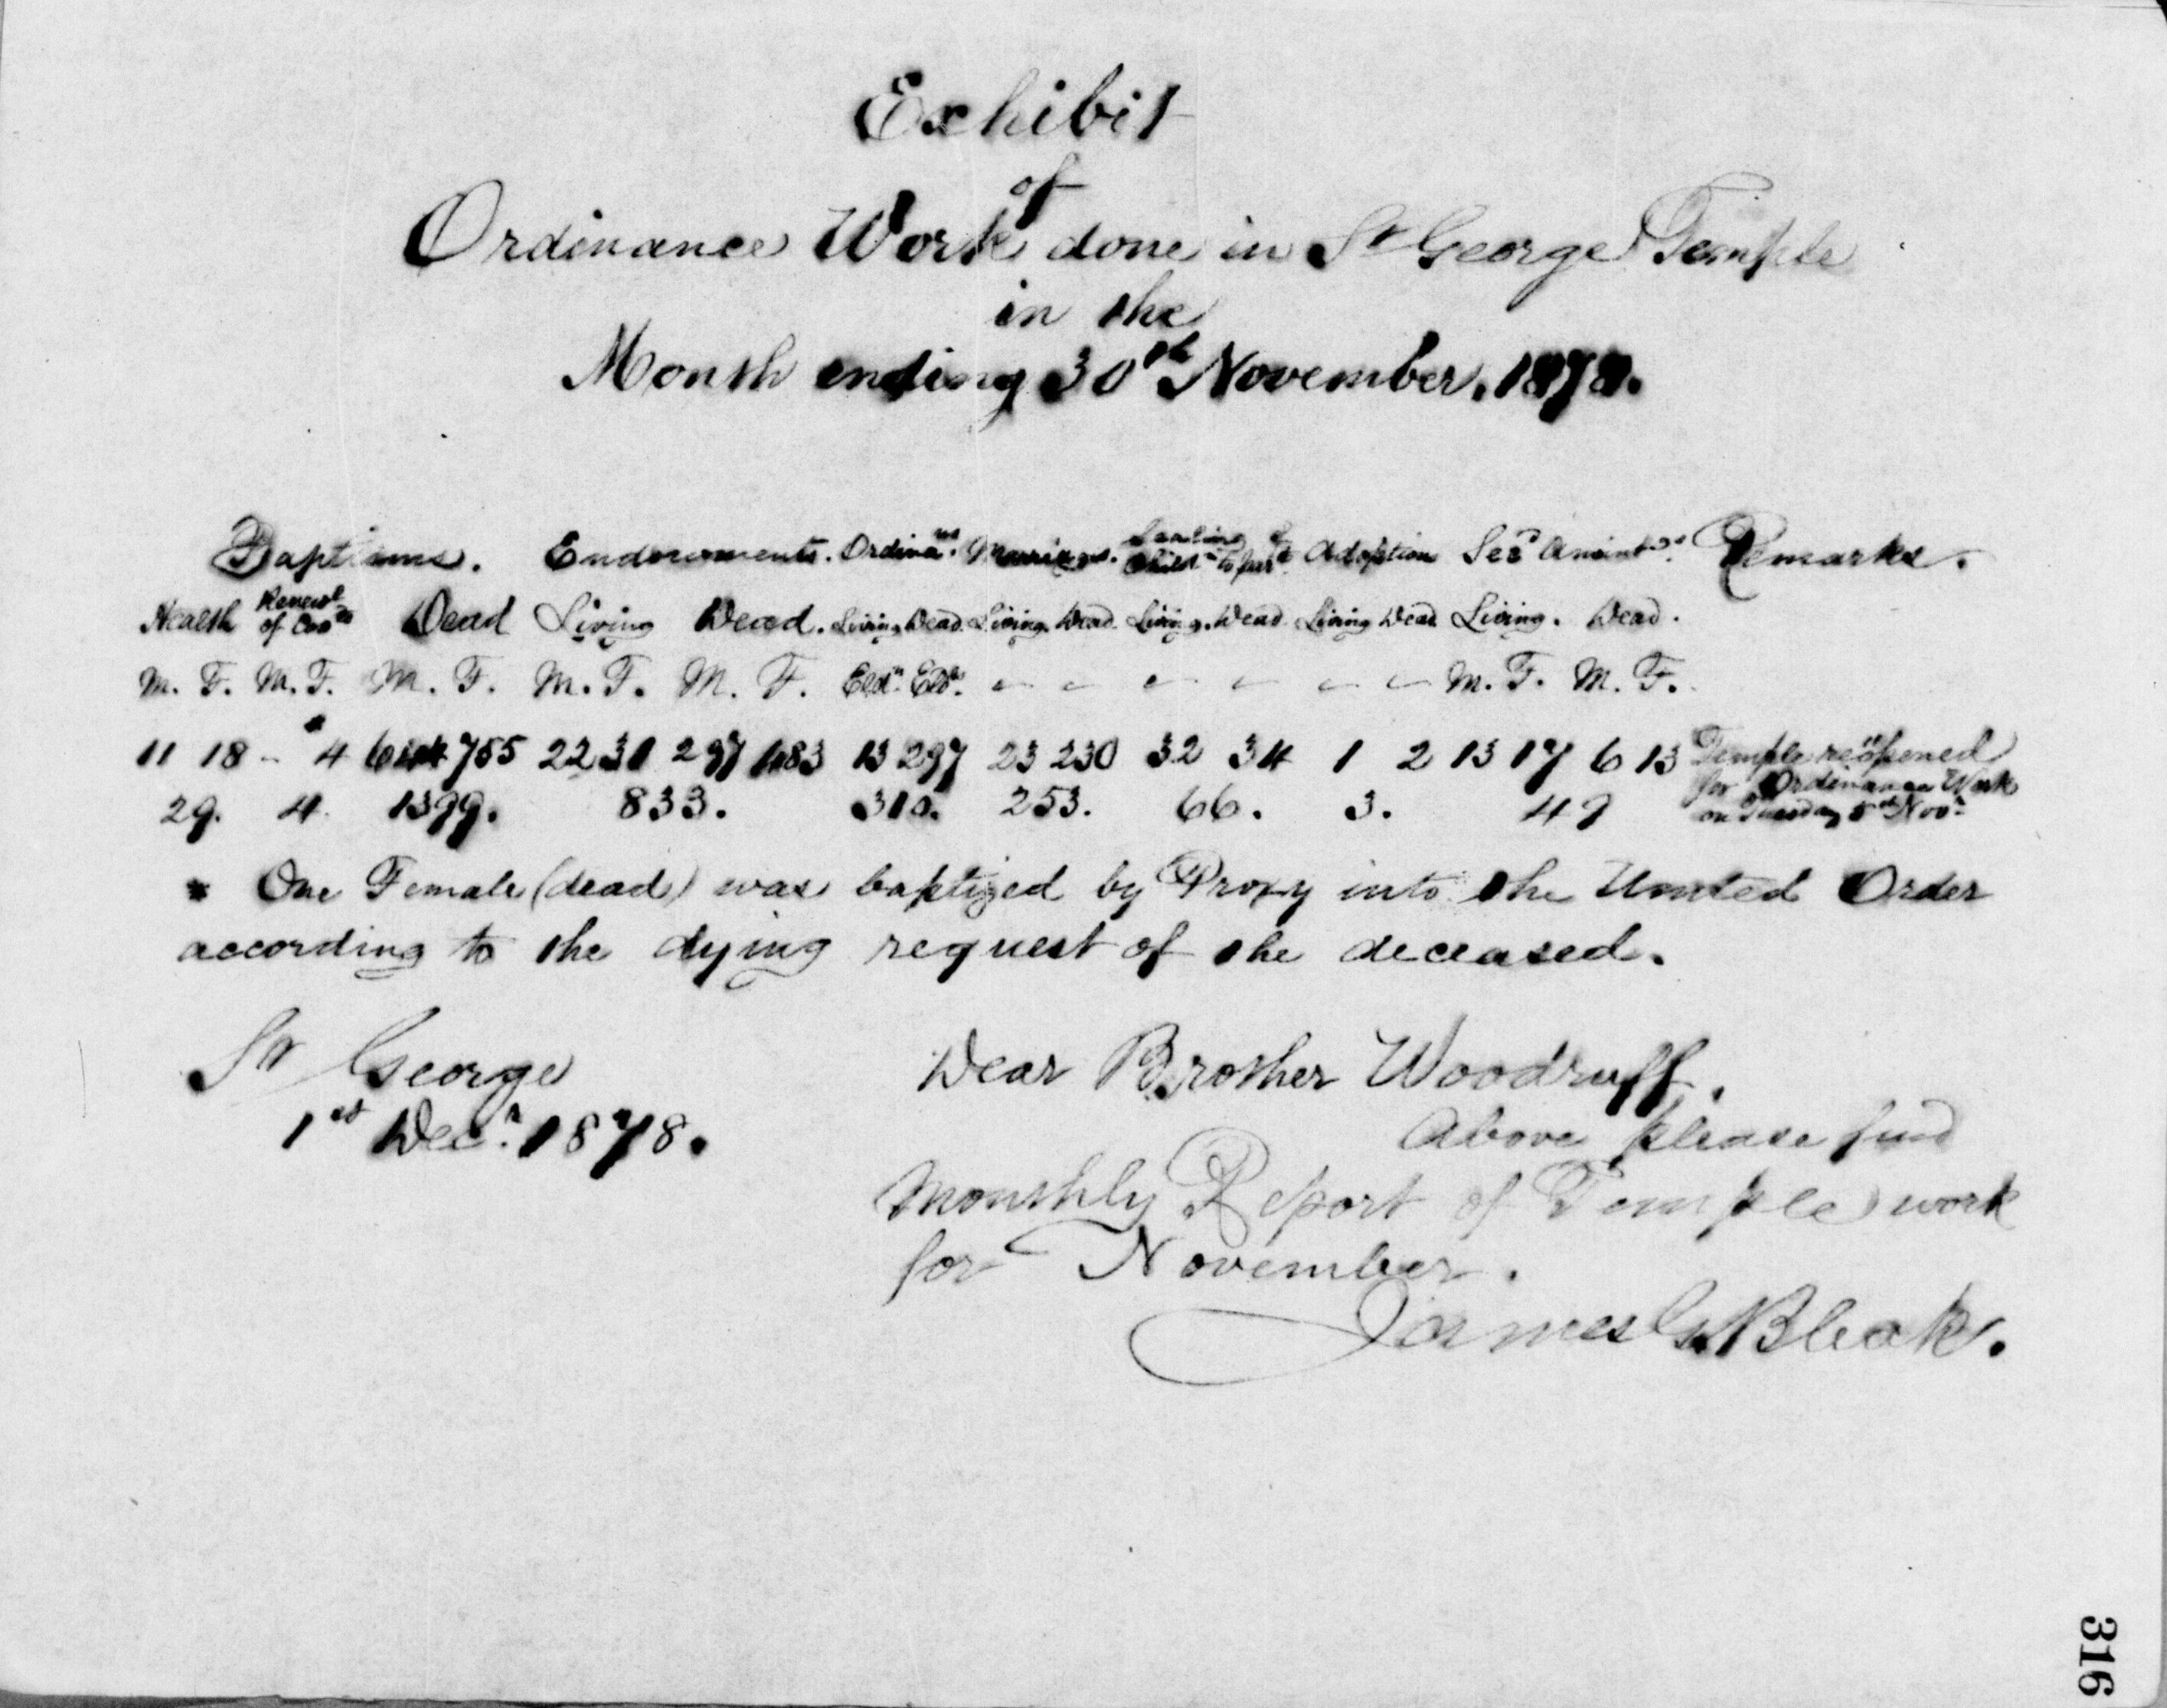 Exhibit
of
Ordinance Work done in St George Temple
in the
Month ending 30th November, 1878.
Baptisms. Endowments. Ordinans. Marriages. Sealing of Childn to Part Adoption Secd Anointgs Remarks.
Health Renewl of Covts Dead Living Dead. Living Dead Living Dead Living. Dead Living Dead Living. Dead.
M. F. M. F. M. F. M. F. M. F. Eldrs Eldrs. — — — — — — M. F. M. F.
11 18 - *4 644 755 22 31 297 483 13 297 23 230 32 34 1 2 13 17 6 13 Temple reopened
for Ordinance Work
29. 4. 1399. 833. 310. 253. 66. 3. 49 on Tuesday 5th Novr
* One Female (dead) was baptized by Proxy into the United Order
according to the dying request of the deceased.
St George
1st Decr. 1878.
Dear Brother Woodruff,
Above please find
Monthly Report of Temple work
for November.
James G. Bleak.
316